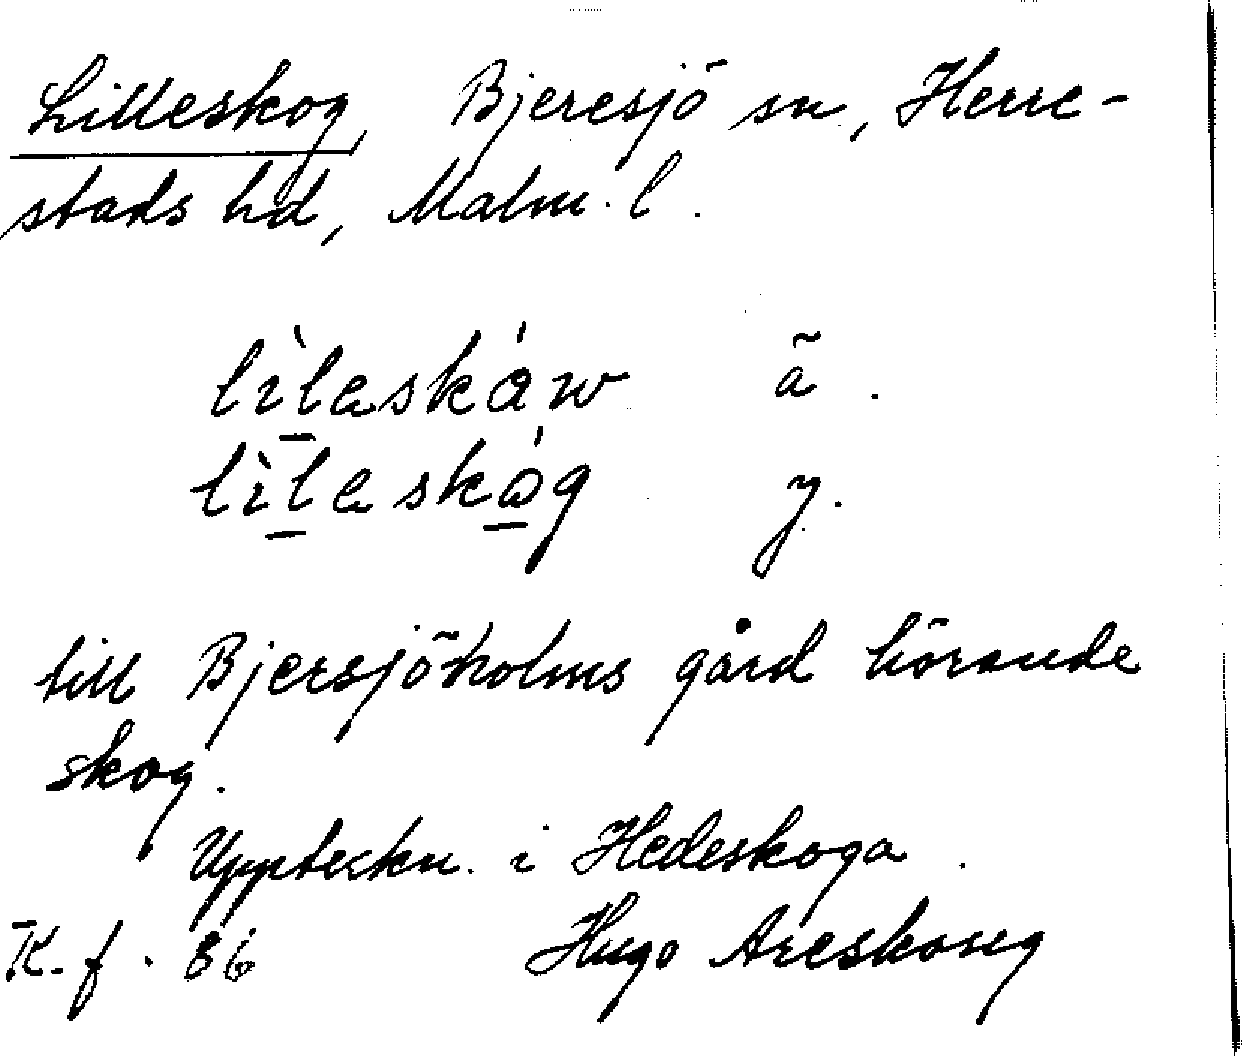 Lilleskog, Bjeresjö sn, Herre-
stads hd, Malm. l.
lìlaskáw ã.
lìlaskóg y.
till Bjersjöholms gård hörande
skog.
Uppteckn. i Hedeskoga.
K. f. 86 Hugo Areskoug